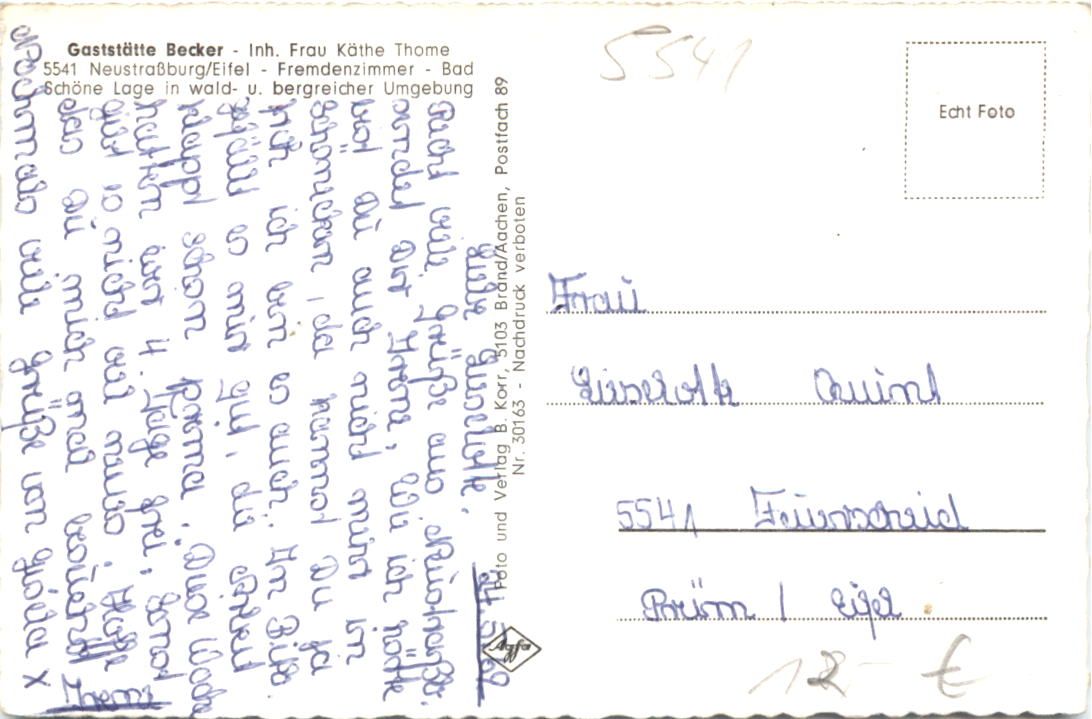 Gaststätte Becker - Inh. Frau Käthe Thome
5541 Neustraßburg/Eifel - Fremdenzimmer - Bad
Schöne Lage in wald- u. bergreicher Umgebung
5541
Echt Foto
Liebe Lieselotte.
Recht viele Grüße aus
sendet Dir Irene, Wie ich hörte
bist Du auch nicht mehr in
Schönecken, da kannst Du ja
wie ich bin es auch. In Bitb.
gefällt es mir gut, die Arbeit
klappt schon prima. Diese Woche
hatten wir 4 Tage frei. Sonst
gibt es nicht viel neues. Hoffe
das Du mich mal besuchst
Nochmals viele Grüße von Hilda x
Irene
Foto und Verlag B. Korr, 5103 Brand/Aachen, Postfach 89
Nr. 30163 - Nachdruck verboten
Agfa
Frau
Lieselotte Quint
5541 Feuerscheid
Prüm / Eifel
12 - €